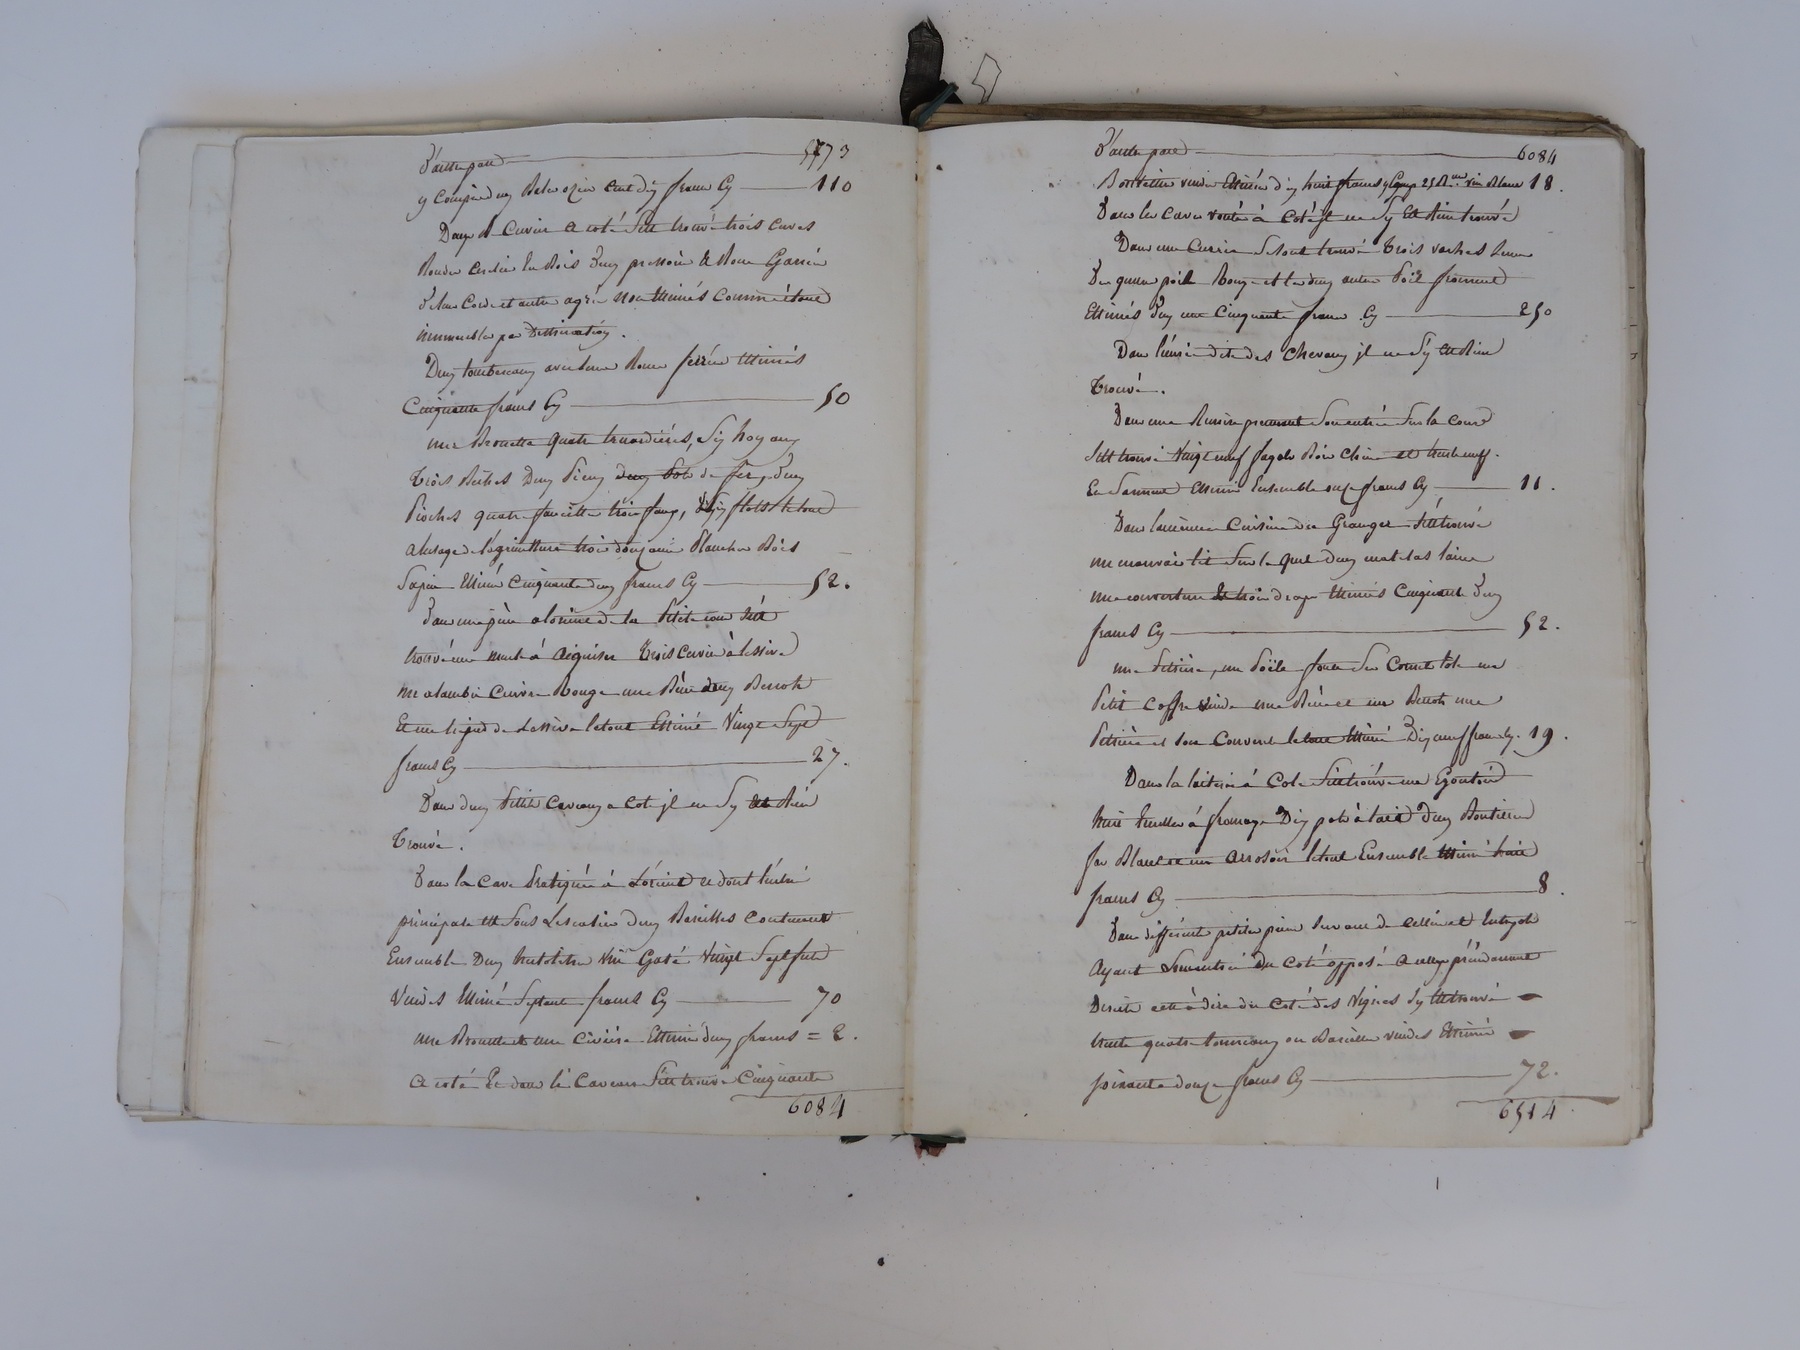 D'autre part 5773
y compris deux Bêche ozier Cent dix francs Cy 110
Dans le Cuvier a coté S'est trouvé trois Cuves
Rondes cerclée En Bois Deux pressoirs Et Roue Garnie
de leur Corde et autre agrés Non Estimés Comme étant
immeuble par Destination.
Deux tombereaux avec leurs Roues ferrées Estimés
Cinquante francs Cy 50
une Brouette quatre , Six hoyaux
trois Bêches Deux Pieux deux de fer, deux
Pioches quatre faucilles trois faux, Six fleaux le tout
a l'usage de l'agriculture trois douzaine Planches Bois
Sapin Estimé Cinquante deux francs Cy 52.
Dans une pièce a l'orient de la Petite cour S'est
trouvé une meule à aiguiser trois Cuviers à lessive
un alambic Cuivre Rouge une deux Benots
Et une de Lessive le tout Estimé Vingt Sept
francs Cy 27.
Dans deux Petits Caveaux a Coté il ne S'y Est Rien
trouvé.
Dans la Cave Pratiquée à L'orient et dont l'entrée
principale est Sous L'escalier deux Bareilles Contenant
Ensemble Deux hectolitres Vin Gaté Vingt Sept futs
Vuides Estimé Septante francs Cy 70
une Brouette et une Civière Estimé deux francs = 2.
a coté Et dans le Caveau S'est trouvé Cinquante
6084
D'autre part 6084
Bouteilles vuides Estimée dix huit francs y Compris 25 Blles Vin Blanc 18.
Dans les Caves voutée à Coté il ne S'y Est Rien trouvé
Dans une Ecurie Se Sont trouvé trois vaches L'une
De quelle poil Rouge et les deux autres Poil froment
Estimés deux cent Cinquante francs Cy 250
Dans l'écurie dite des Chevaux il ne S'y Est Rien
trouvé.
Dans une Remise prenant Son entrée Sur la Cour
S'est trouvé Vingt neuf fagots Bois Chêne et trente neuf
En Sarment Estimé Ensemble onze francs Cy 11.
Dans l'ancienne Cuisine du Granger S'est trouvé
un mauvais lit Sur le quel deux matelas laine
une couverture Et trois draps Estimés Cinquante Deux
francs Cy 52.
une Petrière, un Poële fonte Ses Cornets tole un
Petit Coffre vuide une et un Benot une
Petrière et Son Couvercle le tout Estimé Dix neuf francs Cy. 19.
Dans la laiterie à Coté S'est trouvé un Egoutoir
huit à fromage Dix pots à lait deux Bouteilles
fer Blanc et un arrosoir le tout Ensemble Estimé huit
francs Cy 8.
Dans différentes petites pièces Servant de cellier et Entrepôt
Ayant Leur entrée Du Coté opposé a celles précédemment
Décrite c'est à dire du Coté des Vignes S'y Est trouvé
trente quatre tonneaux ou Bareilles vuides Estimé
Soixante douze francs Cy 72.
6514